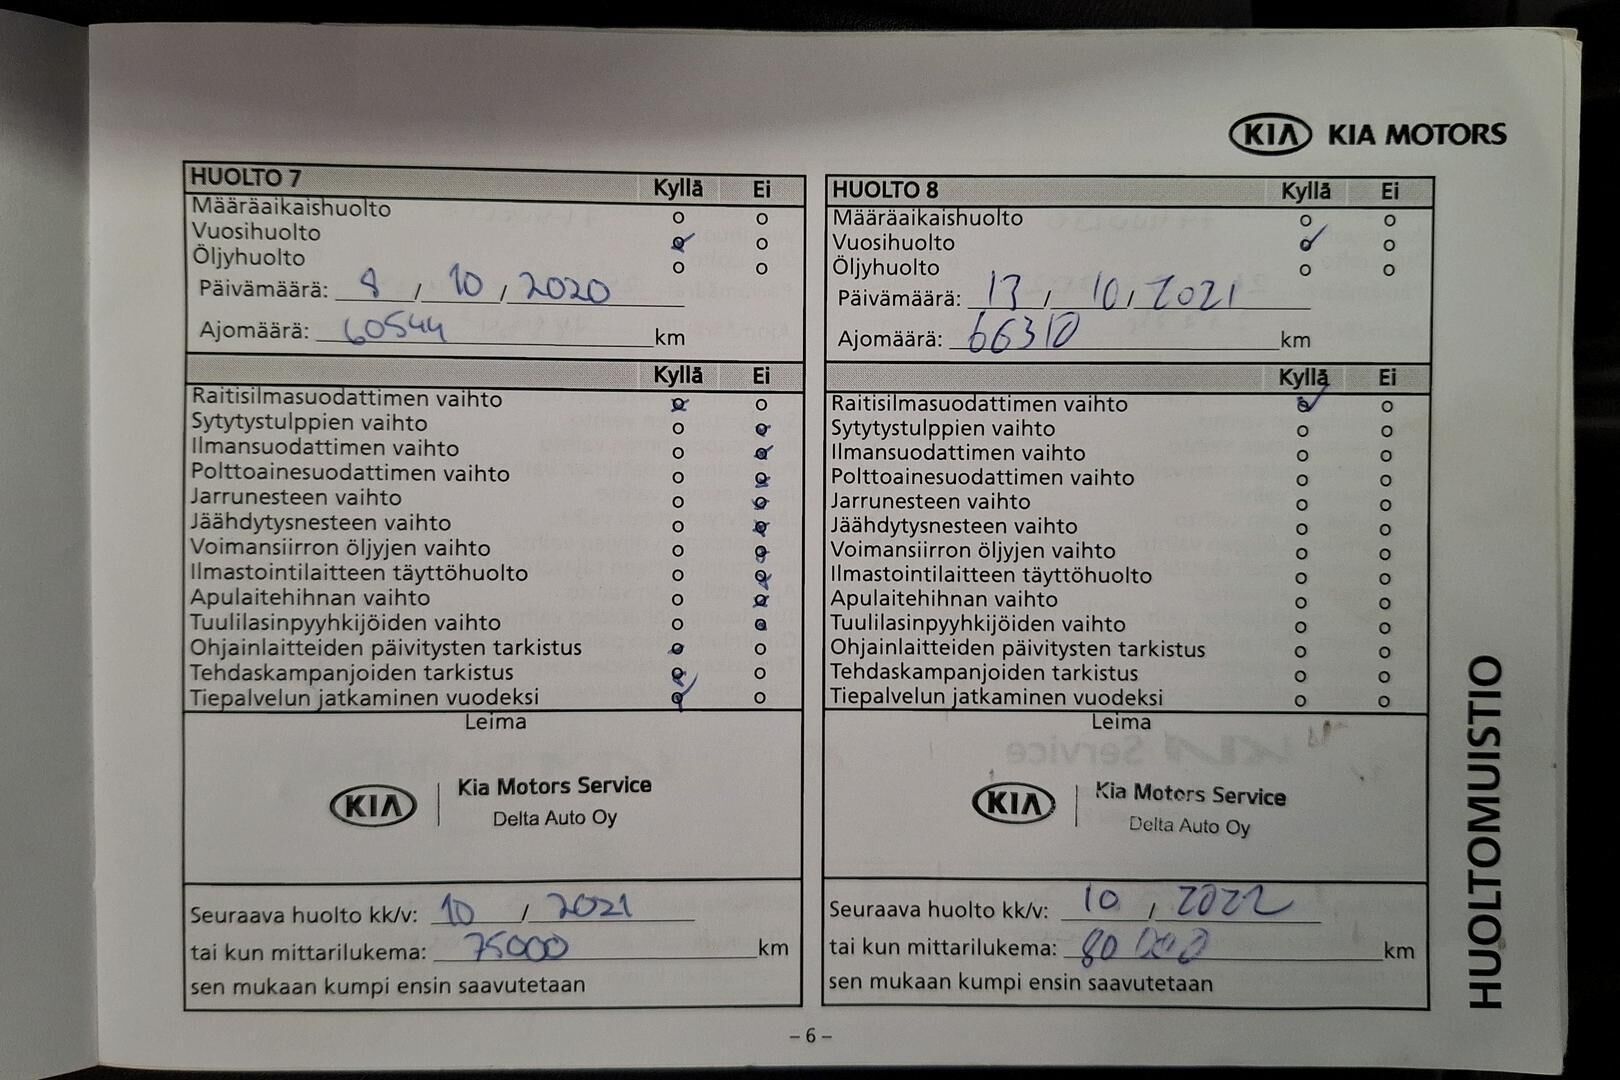 KIA KIA MOTORS
HUOLTO 7 Kyllä Ei
Määräaikaishuolto
Vuosihuolto
Öljyhuolto
Päivämäärä: 8 / 10 / 2020
Ajomäärä: 60544 km
Kyllä Ei
Raitisilmasuodattimen vaihto
Sytytystulppien vaihto
Ilmansuodattimen vaihto
Polttoainesuodattimen vaihto
Jarrunesteen vaihto
Jäähdytysnesteen vaihto
Voimansiirron öljyjen vaihto
Ilmastointilaitteen täyttöhuolto
Apulaitehihnan vaihto
Tuulilasinpyyhkijöiden vaihto
Ohjainlaitteiden päivitysten tarkistus
Tehdaskampanjoiden tarkistus
Tiepalvelun jatkaminen vuodeksi
Leima
KIA Kia Motors Service
Delta Auto Oy
Seuraava huolto kk/v: 10 / 2021
tai kun mittarilukema: 75000 km
sen mukaan kumpi ensin saavutetaan
HUOLTO 8 Kyllä Ei
Määräaikaishuolto
Vuosihuolto
Öljyhuolto
Päivämäärä: 13 / 10 / 2021
Ajomäärä: 66310 km
Kyllä Ei
Raitisilmasuodattimen vaihto
Sytytystulppien vaihto
Ilmansuodattimen vaihto
Polttoainesuodattimen vaihto
Jarrunesteen vaihto
Jäähdytysnesteen vaihto
Voimansiirron öljyjen vaihto
Ilmastointilaitteen täyttöhuolto
Apulaitehihnan vaihto
Tuulilasinpyyhkijöiden vaihto
Ohjainlaitteiden päivitysten tarkistus
Tehdaskampanjoiden tarkistus
Tiepalvelun jatkaminen vuodeksi
Leima
KIA Kia Motors Service
Delta Auto Oy
Seuraava huolto kk/v: 10 / 2022
tai kun mittarilukema: 80 000 km
sen mukaan kumpi ensin saavutetaan
HUOLTOMUISTIO
– 6 –